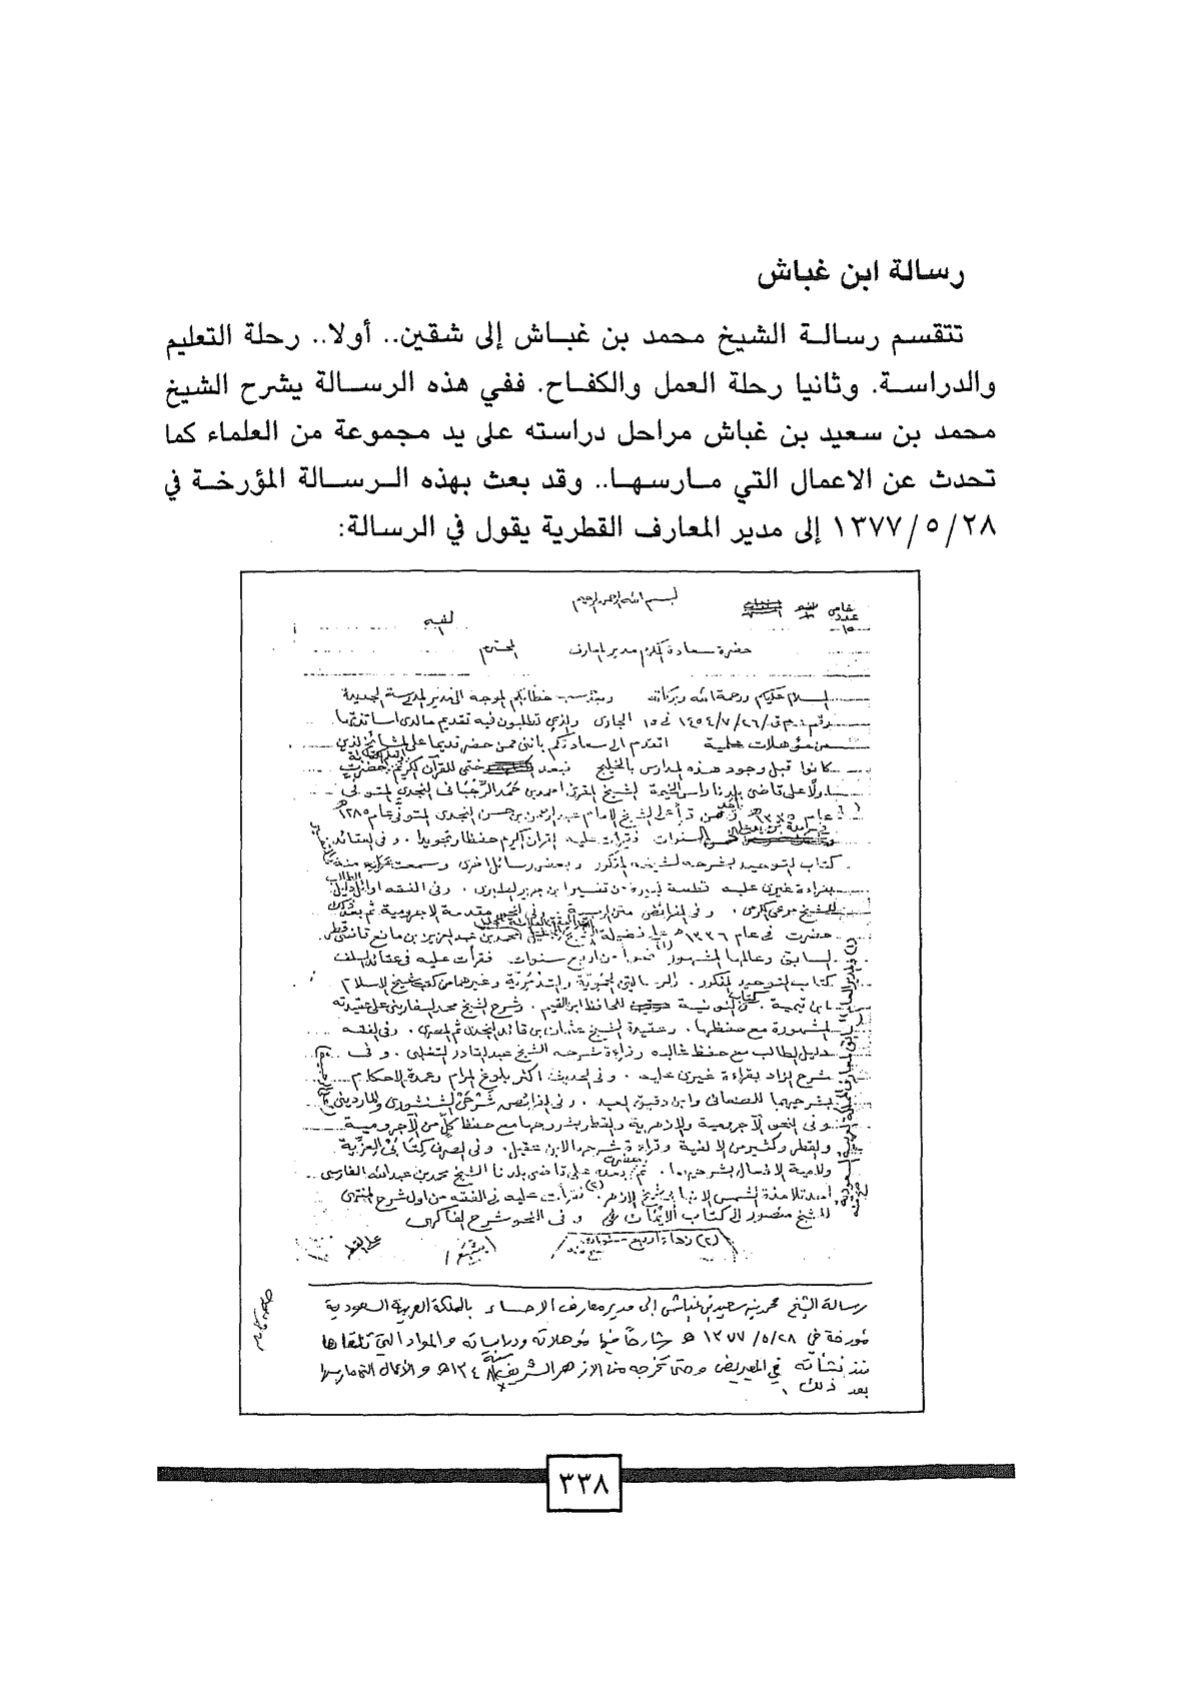 رسالة ابن غباش
تتقسم رسالة الشيخ محمد بن غباش إلى شقين.. أولا.. رحلة التعليم
والدراسة. وثانيا رحلة العمل والكفاح. ففي هذه الرسالة يشرح الشيخ
محمد بن سعيد بن غباش مراحل دراسته على يد مجموعة من العلماء كما
تحدث عن الاعمال التي مارسها.. وقد بعث بهذه الرسالة المؤرخة في
١٣٧٧/٥/٢٨ إلى مدير المعارف القطرية يقول في الرسالة:
بسم الله الرحمن الرحيم
حضرة سعادة المكرم مدير المعارف المحترم
السلام عليكم ورحمة الله وبركاته خطابكم الموجه الى مدير المدرسة الجديدة
في ١٥ الجاري والذي تطلبون فيه تقديم ما لدى اساتذتها
من مؤهلات علمية اتقدم الى سعادتكم بانني ممن حضر قديما على المشائخ الذين
كانوا قبل وجود هذه المدارس بالخليج فبعد ختمي للقرآن الكريم حضرت
اولا على قاضي بلدنا رأس الخيمة الشيخ احمد بن حمد الرجباني النجدي المتوفى
السنوات فقرأت عليه القرآن الكريم حفظا وتجويدا. وفي العقائد
كتاب التوحيد بشرحه لشيخه المذكور وبعض رسائل اخرى وسمعت منه
بقراءة غيري عليه قطعة كبيرة من تفسير ابن جرير الطبري. وفي الفقه اوائل دليل الطالب
للشيخ مرعي الكرمي. وفي الفرائض متن الرحبية وفي النحو مقدمة الاجرومية ثم بعد ذلك
حضرت في عام ١٣٣٦هـ على فضيلة الشيخ محمد بن عبد العزيز بن مانع قاضي قطر
السابق وعالمها المشهور نحوا من اربع سنوات فقرأت عليه في عقائد السلف
كتاب التوحيد المذكور. والرسالتين الحموية والتدمرية وغيرهما من كتب شيخ الاسلام
ابن تيمية. النونية للحافظ ابن القيم. وشرح الشيخ محمد السفاريني على عقيدته
المشهورة مع حفظها. وعقيدة الشيخ عثمان بن قائد النجدي ثم المصري. وفي الفقه
دليل الطالب مع حفظ غالبه وقراءة شرحه للشيخ عبد القادر التغلبي. وفي
شرح الزاد بقراءة غيري عليه. وفي الحديث اكثر بلوغ المرام وعمدة الاحكام
بشرحيهما للصنعاني وابن دقيق العيد. وفي الفرائض شرحي الشنشوري والمارديني
وفي النحو الآجرومية والازهرية والقطر بشروحها مع حفظ كل من الآجرومية
والقطر وكثير من الالفية وقراءة شرحها لابن عقيل. وفي الصرف كتابي العزية
ولامية الافعال بشرحيهما. ثم على قاضي بلدنا الشيخ محمد بن عبد الله الفارسي
احد تلامذة الشمس الانبابي شيخ الازهر (٢) فقرأت عليه في الفقه من اول شرح المنتهى
للشيخ منصور الى كتاب وفي النحو شرح الفاكهي
رسالة الشيخ محمد بن سعيد بن غباش إلى مدير معارف الاحساء بالمملكة العربية السعودية
مؤرخة في ١٣٧٧/٥/٢٨ هـ شارحاً فيها مؤهلاته ودراساته والمواد التي تلقاها
منذ نشأته في المعيريض وحتى تخرجه من الازهر الشريف والأعمال التي مارسها
بعد ذلك.
٣٣٨